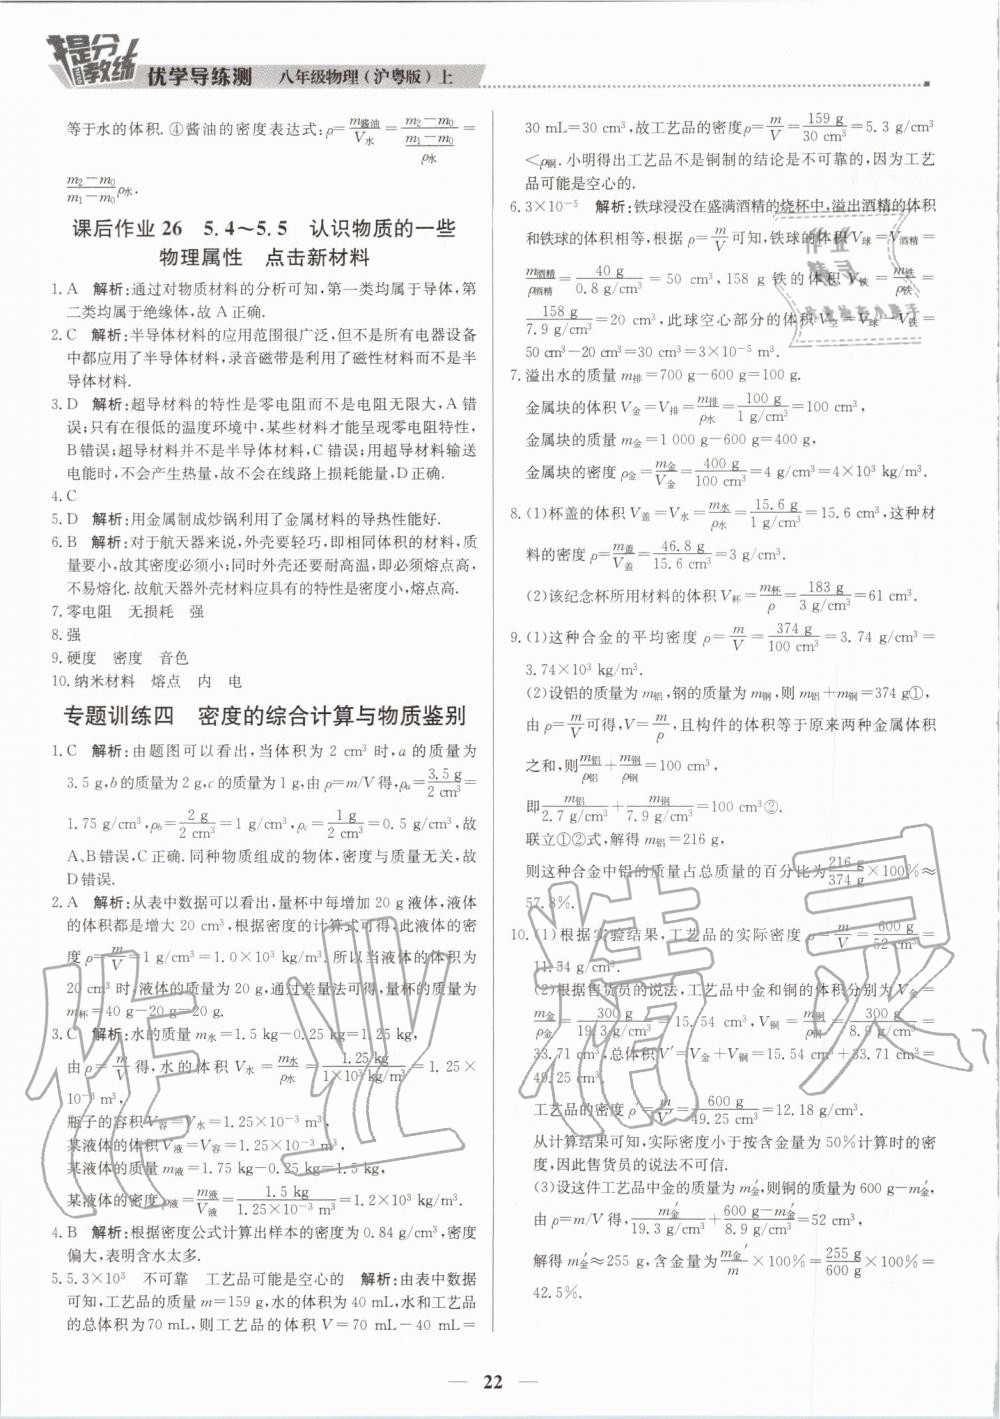 提分教练 优学导练测 八年级物理（沪粤版）上
等于水的体积. ④酱油的密度表达式:ρ=m酱油/V水=(m₂－m₀)/((m₁－m₀)/ρ水)=
(m₂－m₀)/(m₁－m₀)ρ水.
课后作业 26 5.4～5.5 认识物质的一些
物理属性 点击新材料
1. A 解析:通过对物质材料的分析可知,第一类均属于导体,第
二类均属于绝缘体,故 A 正确.
2. C 解析:半导体材料的应用范围很广泛,但不是所有电器设备
中都应用了半导体材料,录音磁带是利用了磁性材料而不是半
导体材料.
3. D 解析:超导材料的特性是零电阻而不是电阻无限大,A 错
误;只有在很低的温度环境中,某些材料才能呈现零电阻特性,
B 错误;超导材料并不是半导体材料,C 错误;用超导材料输送
电能时,不会产生热量,故不会在线路上损耗能量,D 正确.
4. C
5. D 解析:用金属制成炒锅利用了金属材料的导热性能好.
6. B 解析:对于航天器来说,外壳要轻巧,即相同体积的材料,质
量要小,故其密度必须小;同时外壳还要耐高温,即必须熔点高,
不易熔化.故航天器外壳材料应具有的特性是密度小,熔点高.
7. 零电阻 无损耗 强
8. 强
9. 硬度 密度 音色
10. 纳米材料 熔点 内 电
专题训练四 密度的综合计算与物质鉴别
1. C 解析:由题图可以看出,当体积为 2 cm³ 时,a 的质量为
3.5 g,b的质量为 2 g,c的质量为 1 g,由 ρ=m/V 得,ρₐ=3.5 g/2 cm³=
1.75 g/cm³,ρb=2 g/2 cm³=1 g/cm³,ρc=1 g/2 cm³=0.5 g/cm³,故
A、B错误,C正确.同种物质组成的物体,密度与质量无关,故
D错误.
2. A 解析:从表中数据可以看出,量杯中每增加 20 g 液体,液体
的体积都是增大 20 cm³,根据密度的计算式可得,此液体的密
度 ρ=m/V=1 g/cm³=1.0×10³ kg/m³.所以当液体的体积为
20 cm³ 时,液体的质量为 20 g,通过差量法可得,量杯的质量
m杯=40 g－20 g=20 g.
3. C 解析:水的质量 m水=1.5 kg－0.25 kg=1.25 kg,
由 ρ=m/V 得,水的体积 V水=m水/ρ水=1.25 kg/1×10³ kg/m³=1.25×
10⁻³ m³,
瓶子的容积 V容=V水=1.25×10⁻³ m³,
某液体的体积 V液=V容=1.25×10⁻³ m³,
某液体的质量 m液=1.75 kg－0.25 kg=1.5 kg,
某液体的密度 ρ液=m液/V液=1.5 kg/1.25×10⁻³ m³=1.2×10³ kg/m³.
4. B 解析:根据密度公式计算出样本的密度为 0.84 g/cm³,密度
偏大,表明含水太多.
5. 5.3×10³ 不可靠 工艺品可能是空心的 解析:由表中数据
可知,工艺品的质量 m=159 g,水的体积为 40 mL,水和工艺品
的总体积为70 mL,则工艺品的体积 V=70 mL－40 mL=
30 mL=30 cm³,故工艺品的密度ρ=m/V=159 g/30 cm³=5.3 g/cm³
<ρ铜.小明得出工艺品不是铜制的结论是不可靠的,因为工艺
品可能是空心的.
6. 3×10⁻⁵ 解析:铁球浸没在盛满酒精的烧杯中,溢出酒精的体积
和铁球的体积相等,根据 ρ=m/V 可知,铁球的体积 V球=V酒精=
m酒精/ρ酒精=40 g/0.8 g/cm³=50 cm³,158 g 铁的体积 V铁=m铁/ρ铁=
158 g/7.9 g/cm³=20 cm³,此球空心部分的体积V空=V球－V铁=
50 cm³－20 cm³=30 cm³=3×10⁻⁵ m³.
7. 溢出水的质量 m排=700 g－600 g=100 g.
金属块的体积 V金=V排=m排/ρ水=100 g/1 g/cm³=100 cm³,
金属块的质量 m金=1 000 g－600 g=400 g,
金属块的密度 ρ金=m金/V金=400 g/100 cm³=4 g/cm³=4×10³ kg/m³.
8. (1)杯盖的体积 V盖=V水=m水/ρ水=15.6 g/1 g/cm³=15.6 cm³,这种材
料的密度 ρ=m盖/V盖=46.8 g/15.6 cm³=3 g/cm³.
(2)该纪念杯所用材料的体积 V杯=m杯/ρ=183 g/3 g/cm³=61 cm³.
9. (1)这种合金的平均密度 ρ=m/V=374 g/100 cm³=3.74 g/cm³=
3.74×10³ kg/m³.
(2)设铝的质量为 m铝,钢的质量为 m钢,则 m铝+m钢=374 g①,
由 ρ=m/V可得,V=m/ρ,且构件的体积等于原来两种金属体积
之和,则m铝/ρ铝+m钢/ρ钢=100 cm³,
即m铝/2.7 g/cm³+m钢/7.9 g/cm³=100 cm³②.
联立①②式,解得 m铝=216 g,
则这种合金中铝的质量占总质量的百分比为216 g/374 g×100%≈
57.8%.
10. (1)根据实验结果,工艺品的实际密度 ρ=m/V=600 g/52 cm³=
11.54 g/cm³.
(2)根据售货员的说法,工艺品中金和铜的体积分别为 V金=
m金/ρ金=300 g/19.3 g/cm³=15.54 cm³,V铜=m铜/ρ铜=300 g/8.9 g/cm³=
33.71 cm³,总体积V′=V金+V铜=15.54 cm³+33.71 cm³=
49.25 cm³.
工艺品的密度 ρ′=m/V′=600 g/49.25 cm³=12.18 g/cm³.
从计算结果可知,实际密度小于按含金量为50%计算时的密
度,因此售货员的说法不可信.
(3)设这件工艺品中金的质量为 m金′,则铜的质量为 600 g－m金′,
由 ρ=m/V 得,m金′/19.3 g/cm³+(600 g－m金′)/8.9 g/cm³=52 cm³,
解得 m金′≈255 g,含金量为m金′/m×100%=255 g/600 g×100%=
42.5%.
22
作业精灵